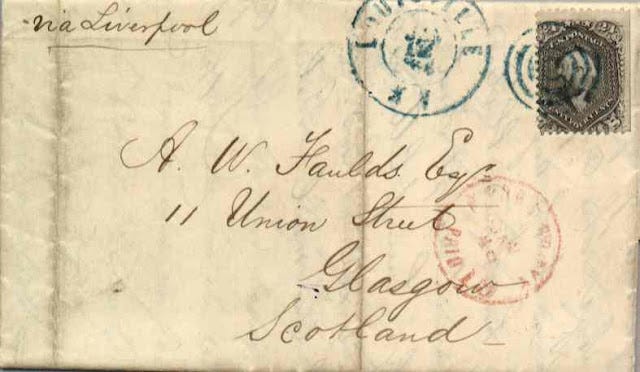 via Liverpool
LOUISVILLE
KY
24
U.S. POSTAGE
A. W. Faulds Esq
11 Union Street
Glasgow
Scotland
PAID